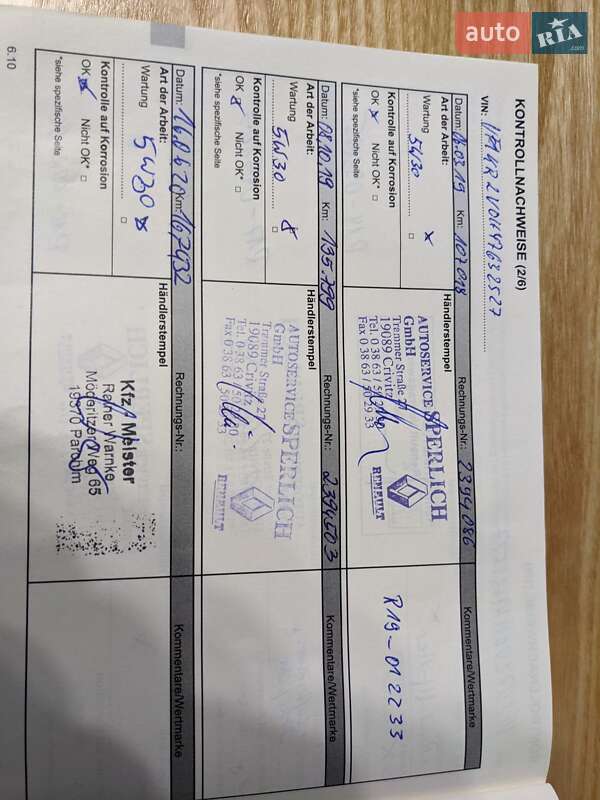 auto RIA .com
KONTROLLNACHWEISE (2/6)
VIN:
Datum: 06.03.19 Km: 107018 Rechnungs-Nr.: 2394086 Kommentare/Wertmarke
Art der Arbeit: Händlerstempel
Wartung 5W30 x □
Kontrolle auf Korrosion
OK x Nicht OK* □
*siehe spezifische Seite
AUTOSERVICE SPERLICH
GmbH
Trammer Straße 27
19089 Crivitz
Tel. 0 38 63 /
Fax 0 38 63 /
RENAULT
R19-012233
Datum: 08.10.19 Km: 135.799 Rechnungs-Nr.: 2394503 Kommentare/Wertmarke
Art der Arbeit: Händlerstempel
Wartung 5W30 □
Kontrolle auf Korrosion
OK Nicht OK* □
*siehe spezifische Seite
AUTOSERVICE SPERLICH
GmbH
Trammer Straße 27
19089 Crivitz
Tel. 0 38 63 /
Fax 0 38 63 /
RENAULT
Datum: Km: 167932 Rechnungs-Nr.: Kommentare/Wertmarke
Art der Arbeit: Händlerstempel
Wartung 5W30
Kontrolle auf Korrosion
OK Nicht OK* □
*siehe spezifische Seite
Kfz Meister
Rainer Warnke
Möderitzer Weg 65
19370 Parchim
6.10